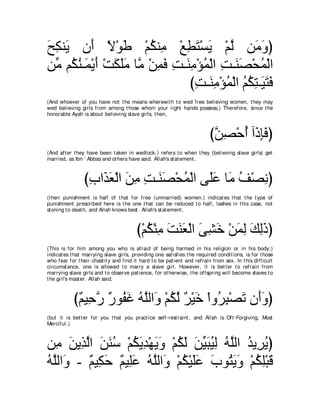 (وَمَن لَّمْ يَسْتَطِعْ مِنكُمْ طَوْلاً أَن يَنكِحَ
الْمُحْصَنَـتِ الْمُؤْمِنَـتِ فَمِن مَّا مَلَكَتْ أَيْمَـنُكُم مِّن
فَتَيَـتِكُمُ الْمُؤْمِنَـتِ)
(And whoever of you have not the means wherewith to wed free believing women, they may
wed believing girls from among those whom your right hands possess,) Therefore, since the
honorable Ayah is about believing slave girls, then,
(فَإِذَآ أُحْصِنَّ)
(And after they have been taken in wedlock,) refers to when they (believing slave girls) get
married, as Ibn `Abbas and others have said. Allah's statement,
(نِصْفُ مَا عَلَى الْمُحْصَنَـتِ مِنَ الْعَذَابِ)
(their punishment is half of that for free (unmarried) women.) indicates that the type of
punishment prescribed here is the one that can be reduced to half, lashes in this case, not
stoning to death, and Allah knows best. Allah's statement,
(ذَلِكَ لِمَنْ خَشِىَ الْعَنَتَ مِنْكُمْ)
(This is for him among you who is afraid of being harmed in his religion or in his body;)
indicates that marrying slave girls, providing one satisfies the required conditions, is for those
who fear for their chastity and find it hard to be patient and refrain from sex. In this difficult
circumstance, one is allowed to marry a slave girl. However, it is better to refrain from
marrying slave girls and to observe patience, for otherwise, the offspring will become slaves to
the girl's master. Allah said,
(وَأَن تَصْبِرُواْ خَيْرٌ لَّكُمْ وَاللَّهُ غَفُورٌ رَّحِيمٌ)
(but it is better for you that you practice self-restraint, and Allah is Oft-Forgiving, Most
Merciful.)
(يُرِيدُ اللَّهُ لِيُبَيِّنَ لَكُمْ وَيَهْدِيَكُمْ سُنَنَ الَّذِينَ مِن
قَبْلِكُمْ وَيَتُوبَ عَلَيْكُمْ وَاللَّهُ عَلِيمٌ حَكِيمٌ - وَاللَّهُ